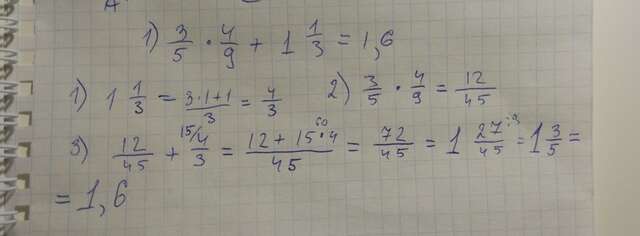 1) 3/5 · 4/9 + 1 1/3 = 1,6
1) 1 1/3 = 3·1+1/3 = 4/3   2) 3/5 · 4/9 = 12/45
3) 12/45 + 15/ 4/3 = 12 + 15·4/45 60 = 72/45 = 1 27/45 :9 = 1 3/5 =
= 1,6